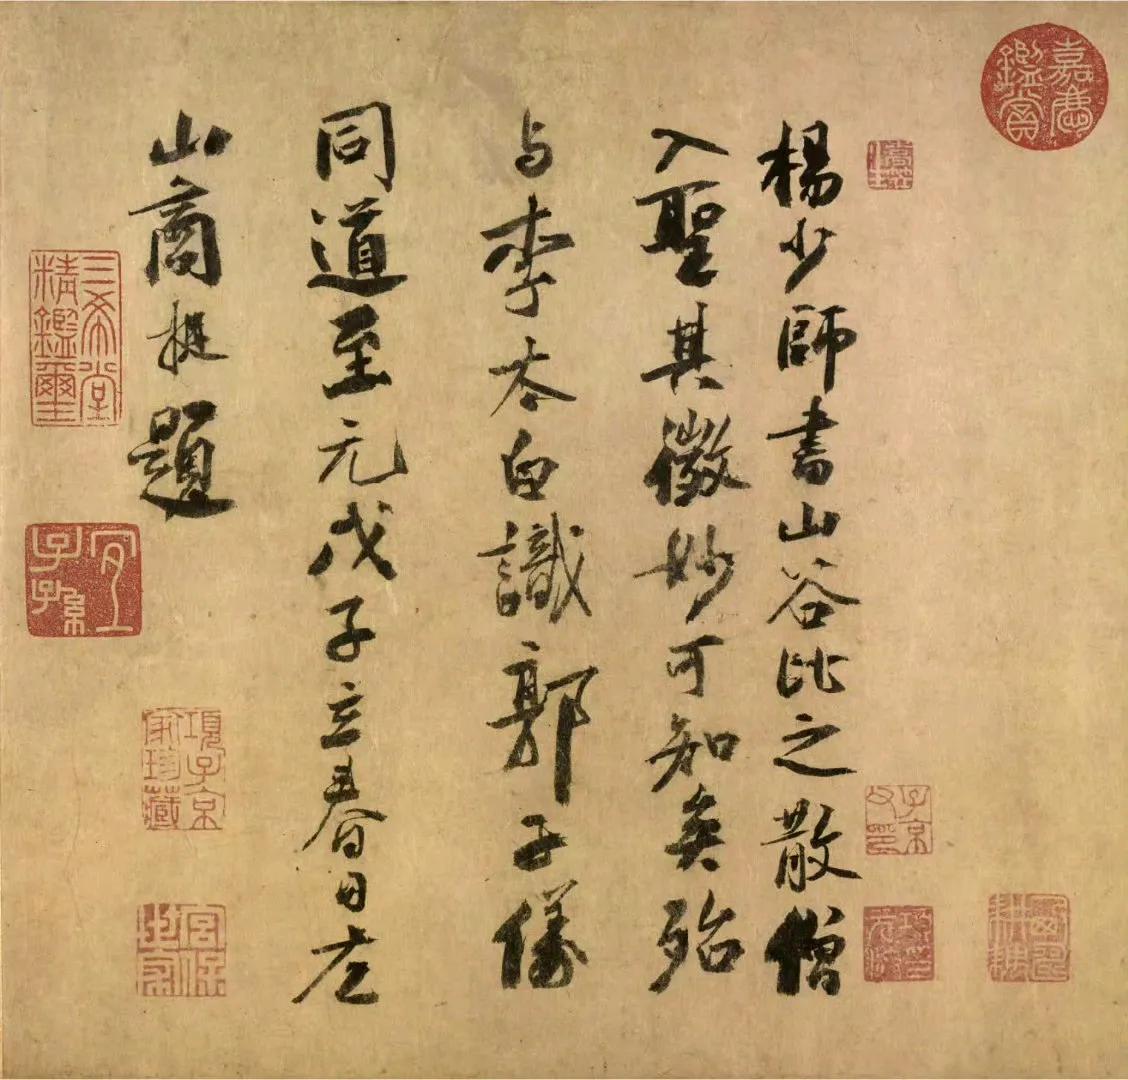 楊少師書山谷比之散僧
入聖其微妙可知矣殆
与李太白識郭子儀
同道至元戊子立春日左
山商挺題
嘉慶鑑賞
三希堂精鑑璽
宜子孫
項子京家珍藏
子京父印
宮保世家